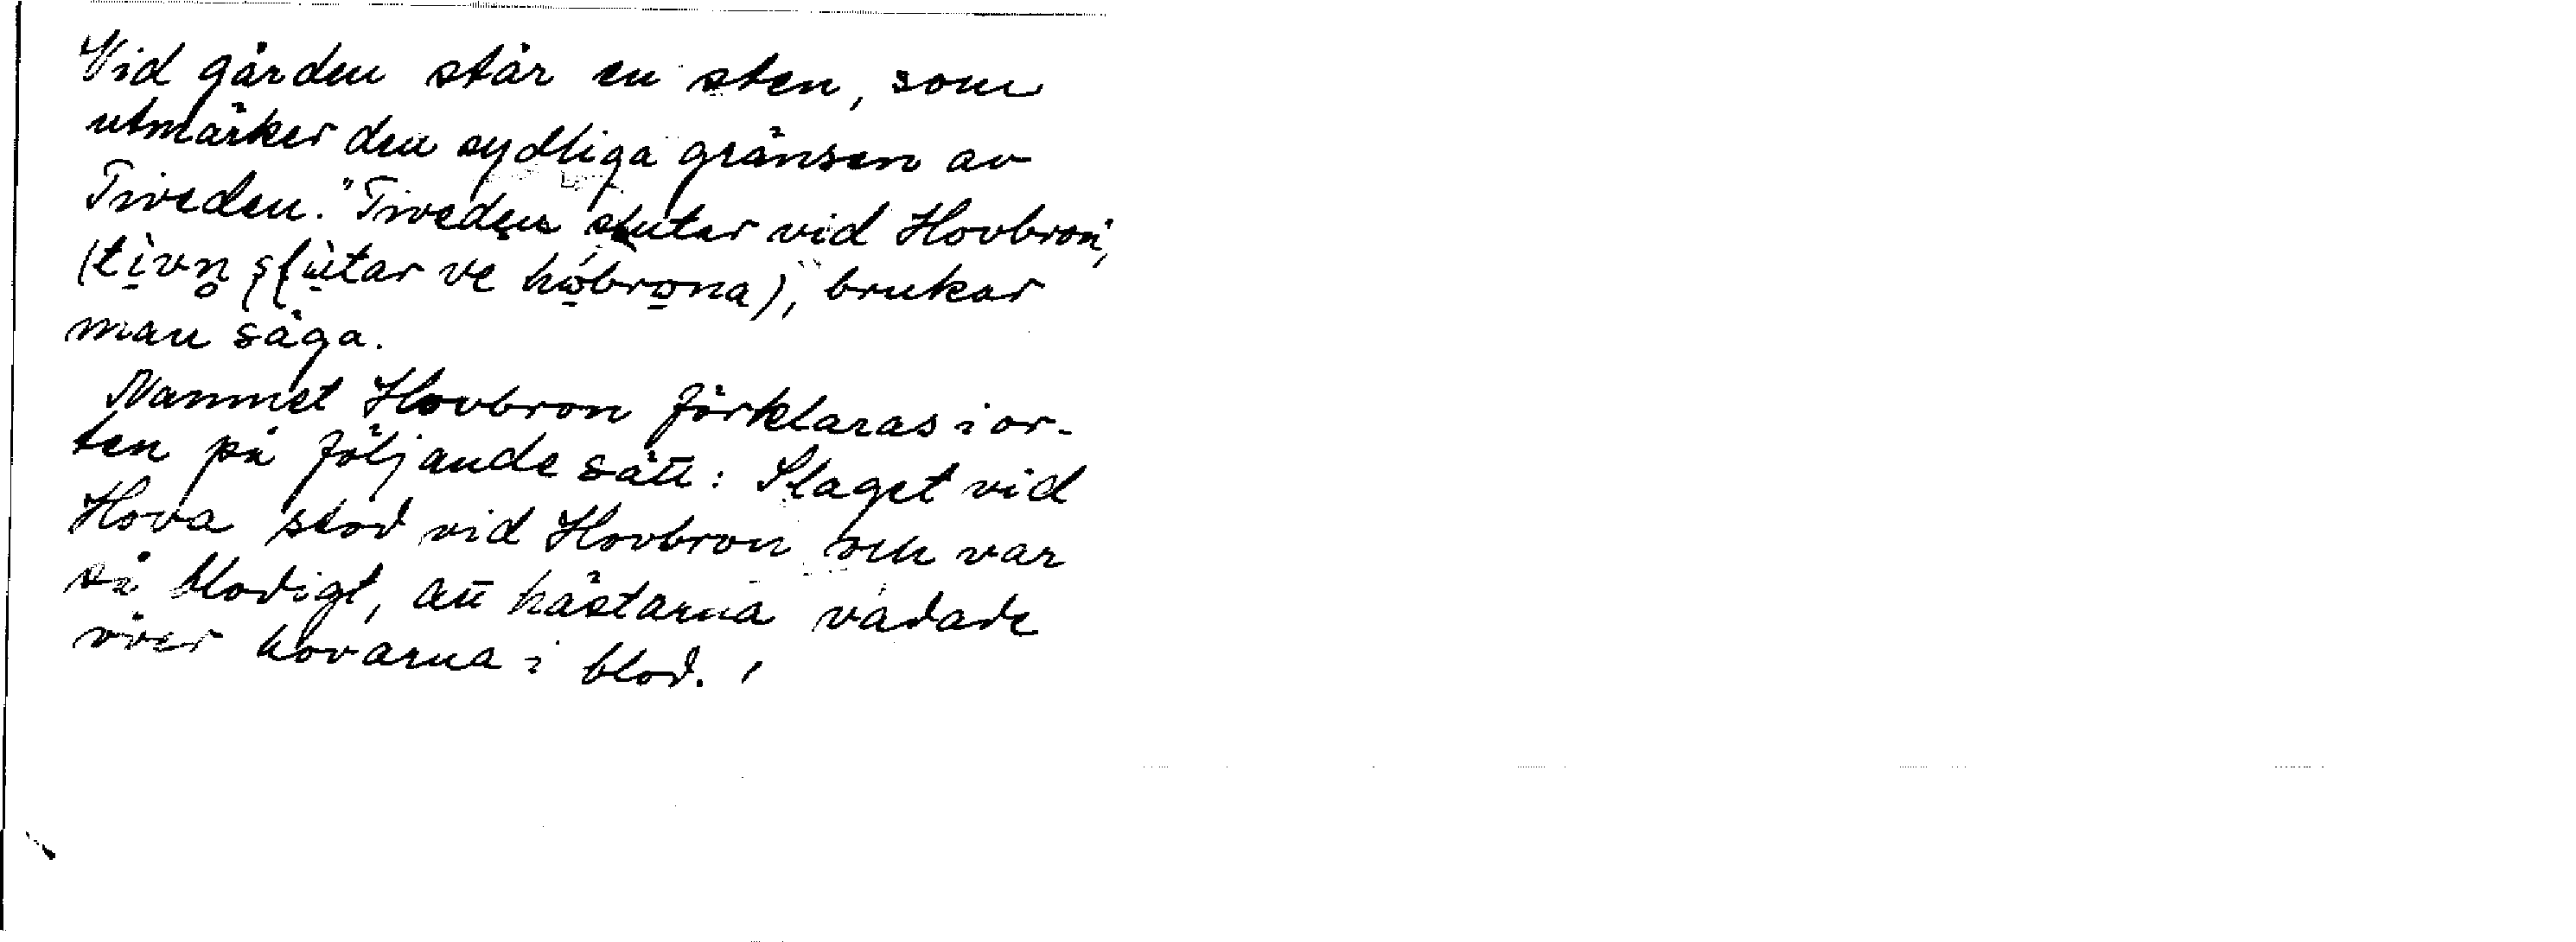 Vid gården står en sten, som
utmärker den sydliga gränsen av
Tiveden. "Tiveden slutar vid Hovbron",
(tìvn̥ sl̥ùtar ve hóbrona), brukar
man säga.
Namnet Hovbron förklaras i or-
ten på följande sätt: Slaget vid
Hova stod vid Hovbron och var
så blodigt, att hästarna vadade
över hovarna i blod.